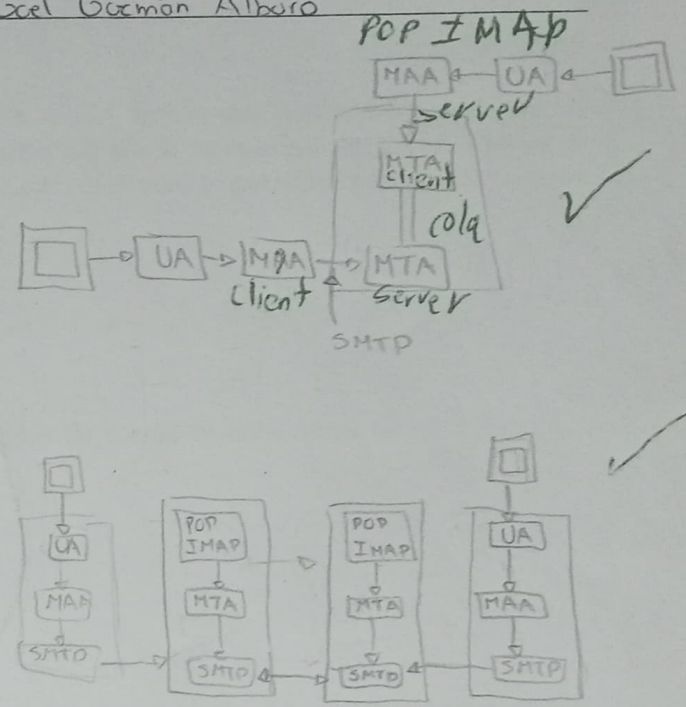 Guzman Alburo
POP IMAP
MAA UA
server
MTA
client
cola
UA MAA MTA
client server
SMTP
UA
MAA
SMTP
POP
IMAP
MTA
SMTP
POP
IMAP
MTA
SMTP
UA
MAA
SMTP